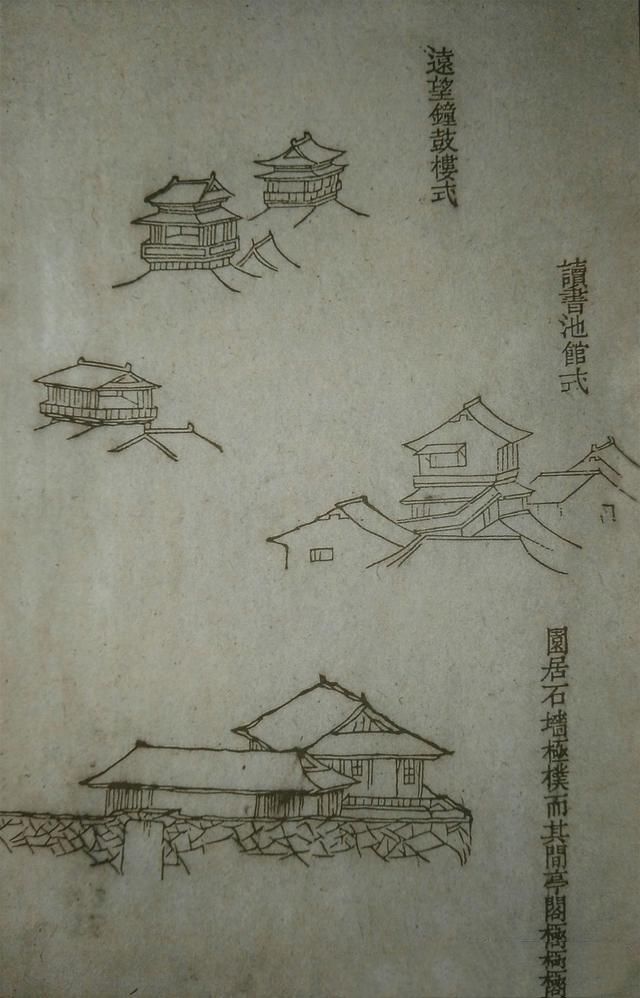 遠望鐘鼓樓式
讀書池館式
園居石墻極樸而其間亭閣極